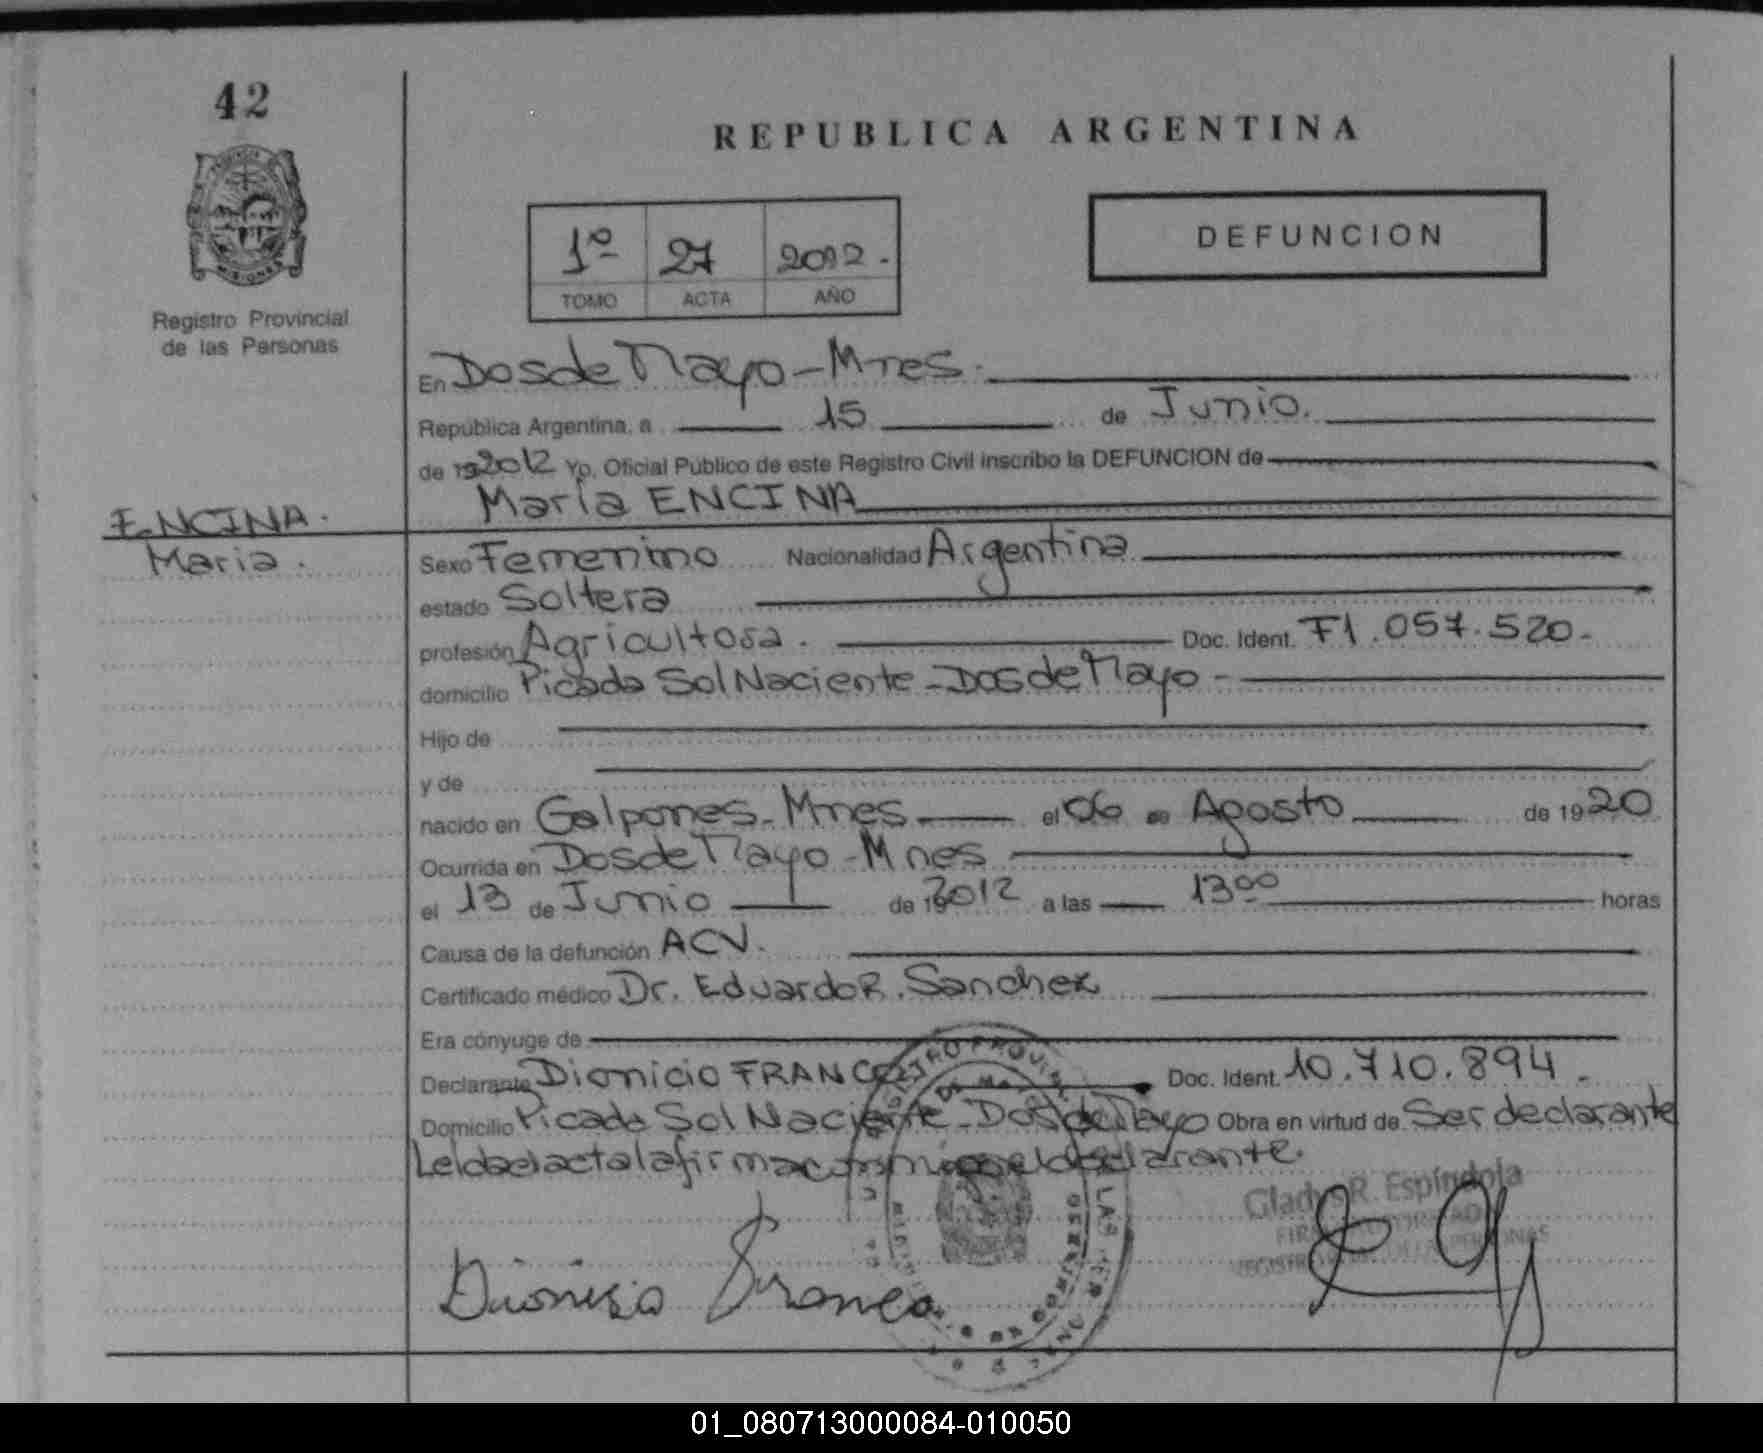 42
REPUBLICA ARGENTINA
PROVINCIA DE
MISIONES
Registro Provincial
de las Personas
1º 27 2012.
TOMO ACTA AÑO
DEFUNCION
En Dos de Mayo-Mnes.
República Argentina, a 15 de Junio.
de 192012 Yo, Oficial Público de este Registro Civil inscribo la DEFUNCION de
María ENCINA
ENCINA.
Maria.
Sexo Femenino Nacionalidad Argentina
estado Soltera
profesión Agricultora. Doc. Ident. F1.057.520.
domicilio Picada Sol Naciente-Dos de Mayo-
Hijo de
y de
nacido en Galpones-Mnes el 06 de Agosto de 1920
Ocurrida en Dos de Mayo-Mnes
el 13 de Junio de 192012 a las 1300 horas
Causa de la defunción ACV.
Certificado médico Dr. Eduardo R. Sanchez
Era cónyuge de
Declarante Dionicio FRANCO Doc. Ident. 10.710.894.
Domicilio Picada Sol Naciente-Dos de Mayo Obra en virtud de Ser declarante
Leída el acta la firma conmigo el declarante.
Gladys R. Espíndola
Dionisio Franco
01_080713000084-010050